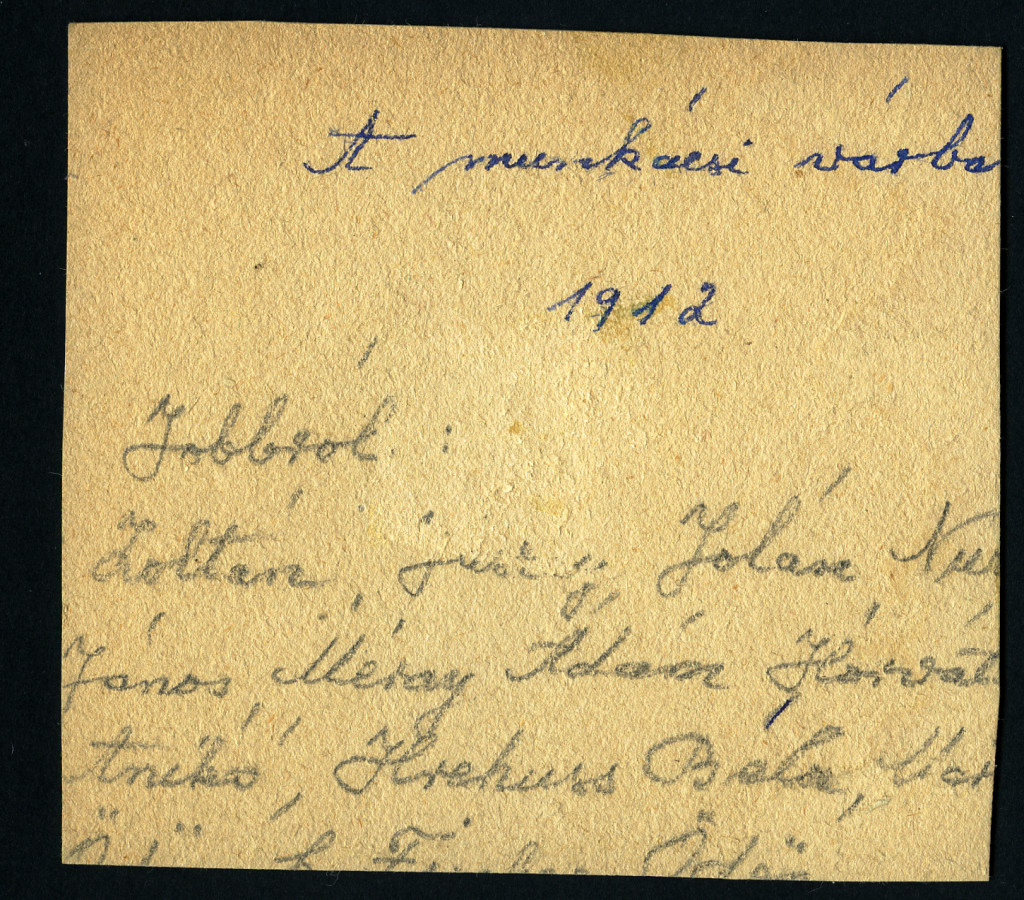 A munkácsi várba
1912
Jobbról :
Zoltán, Jolán
János, Méray Ádám Horvát
Anikó, Hrehuss Béla, Mar
Ödön